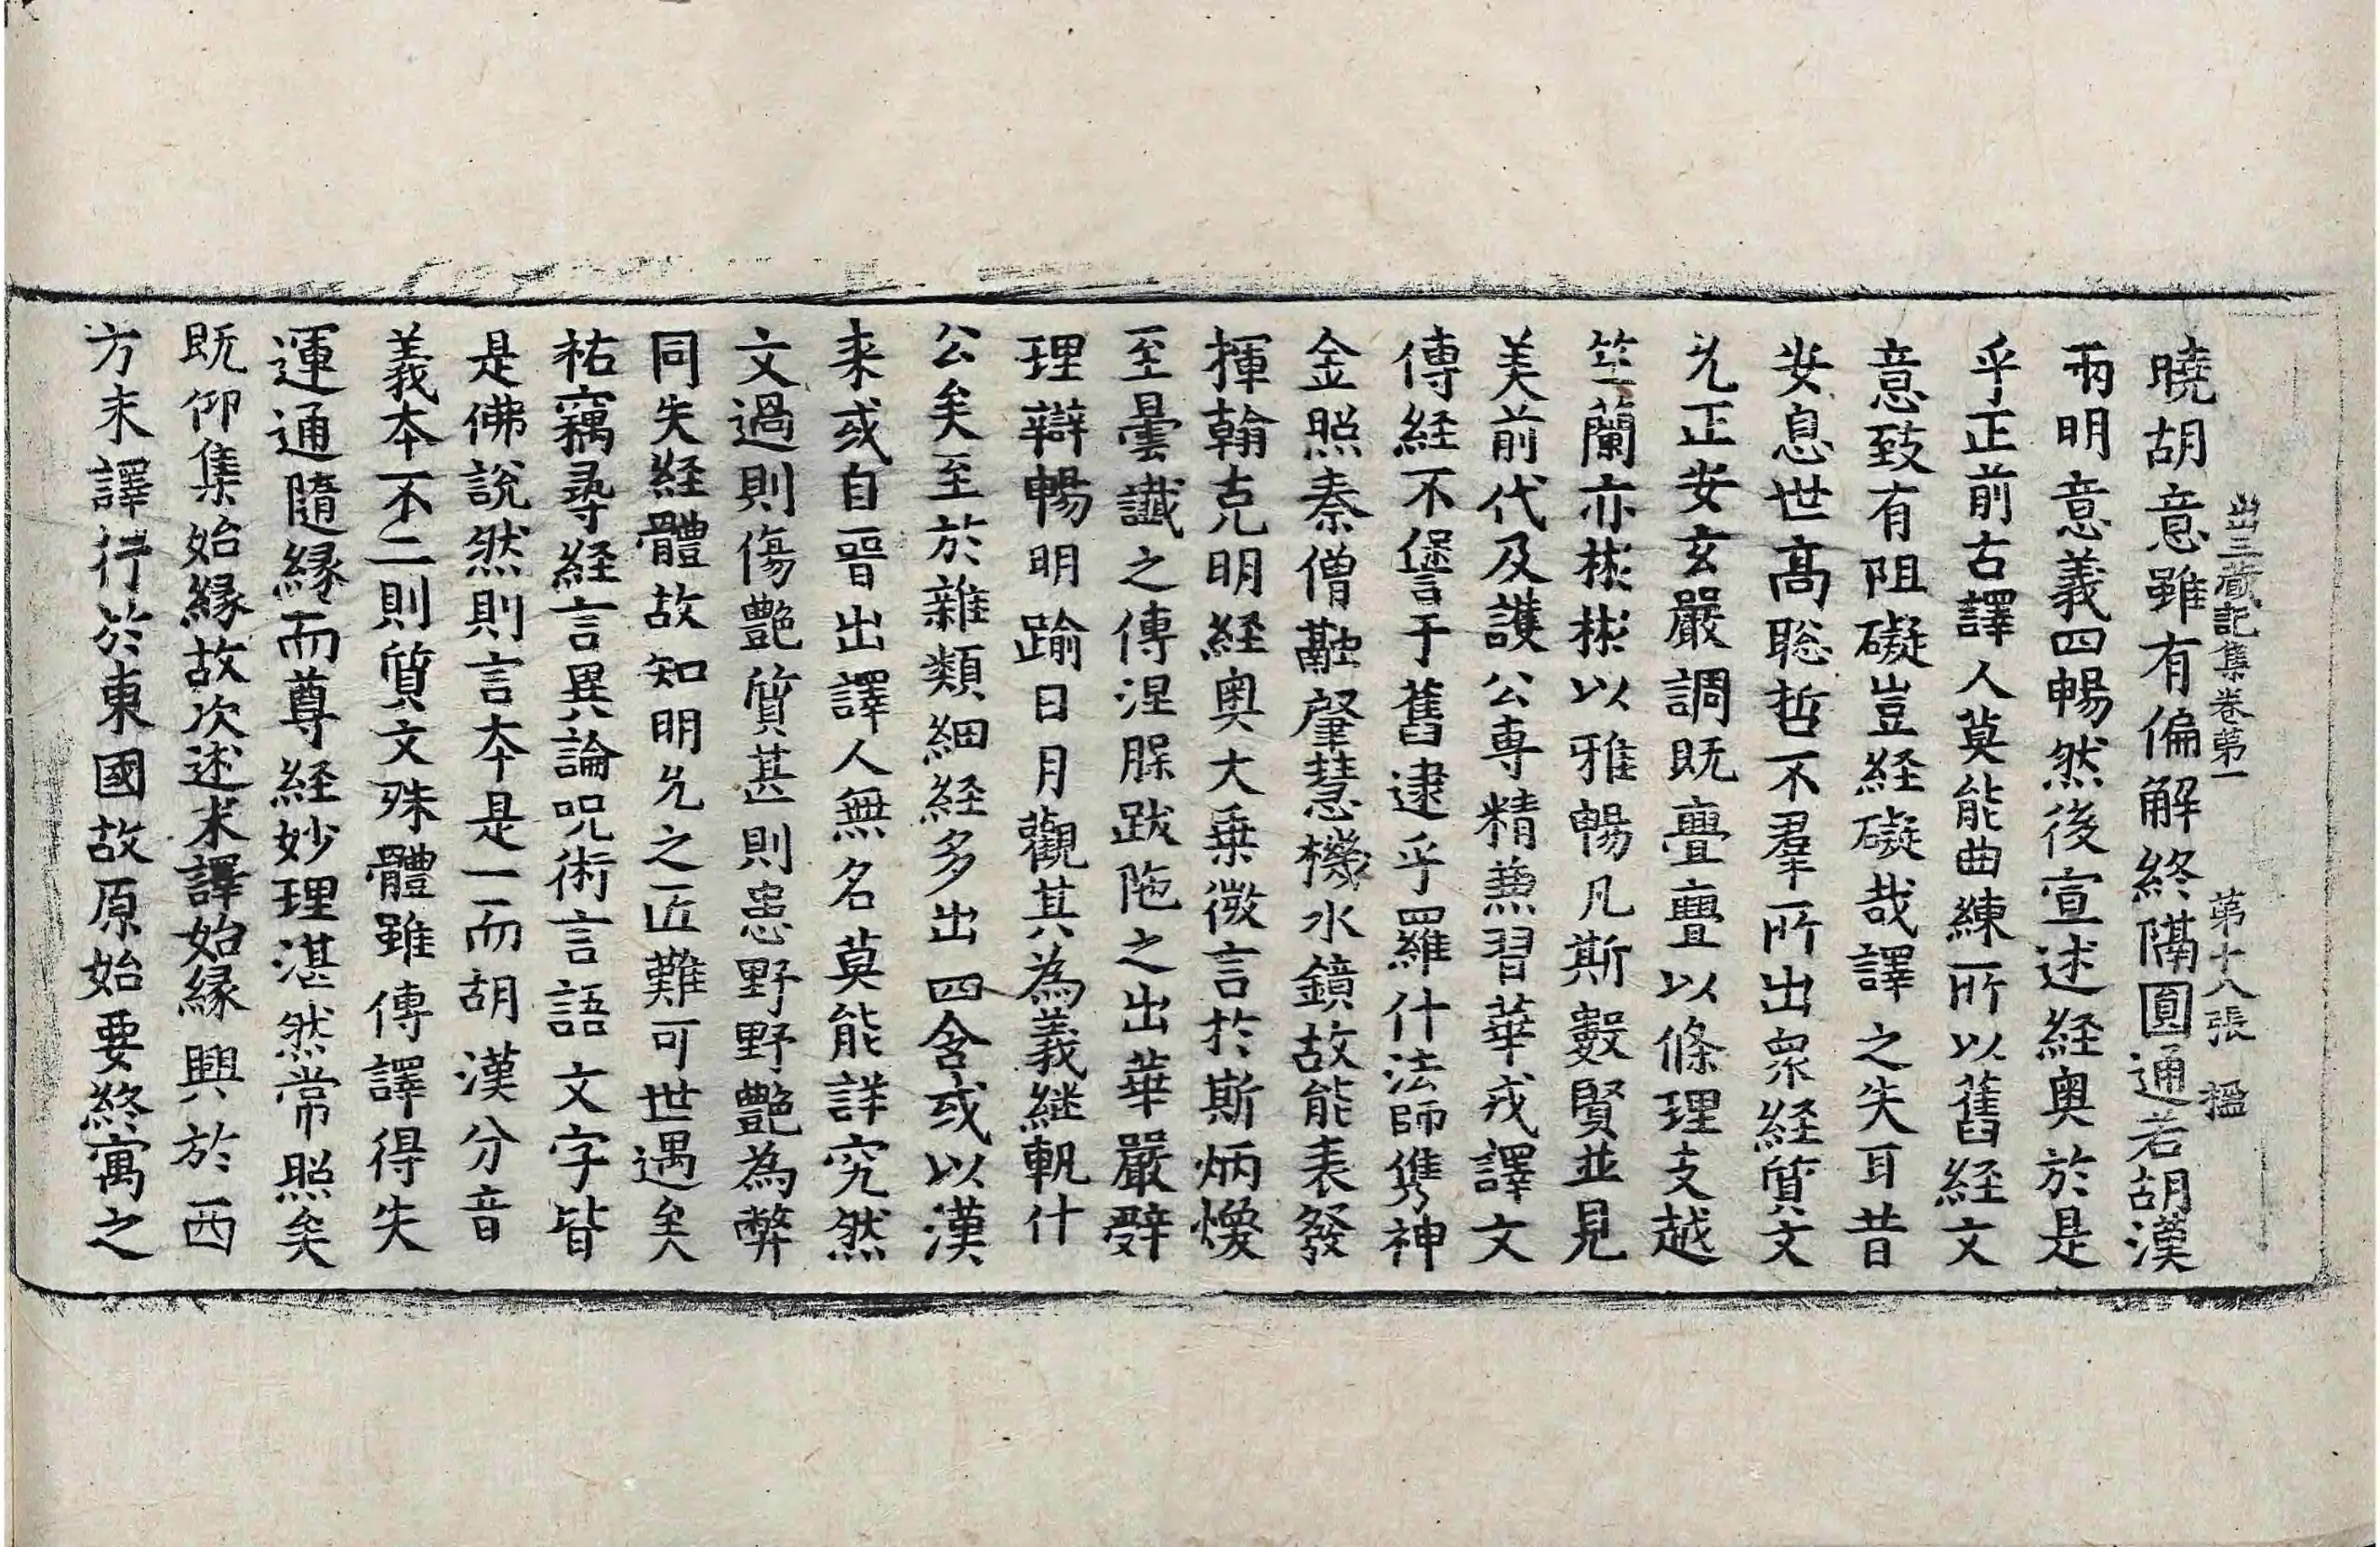 出三藏記集卷第一 第十八張 楹
曉胡意雖有偏解終隔圓通若胡漢
兩明意義四暢然後宣述経奧於是
乎正前古譯人莫能曲練所以舊經文
意致有阻礙豈経礙哉譯之失耳昔
安息世髙聡哲不羣所出衆経質文
允正安玄嚴調既亹亹以條理支越
竺蘭亦彬彬以雅暢凡斯數賢並見
美前代及護公專精兼習華戎譯文
傳経不𠎝于舊逮乎羅什法師儁神
金照秦僧融肇慧機水鏡故能表發
揮翰克明経奧大乗微言於斯炳煥
至曇讖之傳涅脵跋陁之出華嚴辤
理辯暢明踰日月觀其為義継軌什
公矣至於雜類細経多出四含或以漢
来或自晉出譯人無名莫能詳究然
文過則傷艶質甚則患野野艶為弊
同失経體故知明允之匠難可世遇矣
祐竊尋経言異論呪術言語文字皆
是佛說然則言本是一而胡漢分音
義本不二則質文殊體雖傳譯得失
運通隨縁而尊経妙理湛然常照矣
既仰集始縁故次述末譯始縁興於西
方末譯行於東國故原始要終寓之